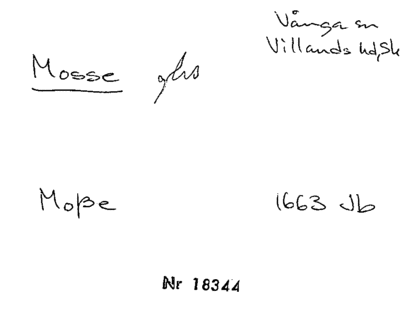 Vånga sn
Villands hd, Sk
Mosse ghs
Moße 1663 Jb
Nr 18344